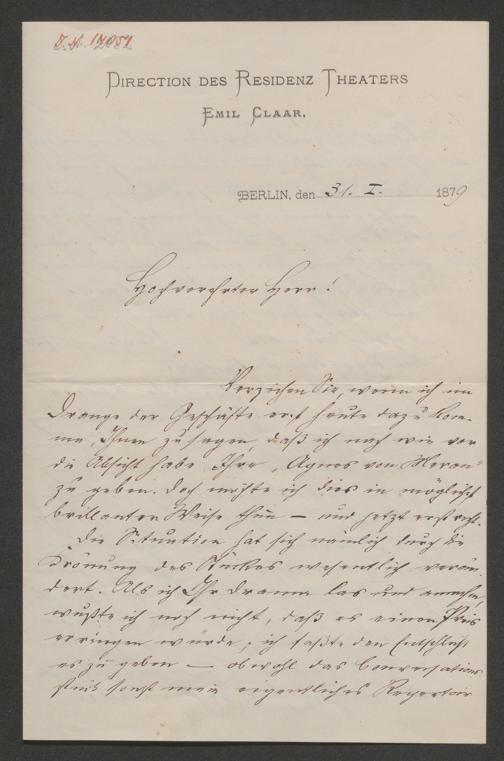 I.N. 17051
DIRECTION DES RESIDENZ THEATERS
EMIL CLAAR.
BERLIN, den 31. I. 1879
Hochverehrter Herr!
Verzeihen Sie, wenn ich im
Drange der Geschäfte erst heute dazu kom-
me, Ihnen zu sagen, daß ich nach wie vor
die Absicht habe Ihre „Agnes von Meran“
zu geben. Doch möchte ich dies in möglichst
brillanter Weise thun — und jetzt erst recht.
Die Situation hat sich nämlich durch die
Krönung des Stückes wesentlich verän-
dert. Als ich Ihr Drama las und annahm,
wußte ich noch nicht, daß es einen Preis
erringen würde; ich faßte den Entschluß
es zu geben — obwohl das Conversations-
stück sonst mein eigentliches Repertoir